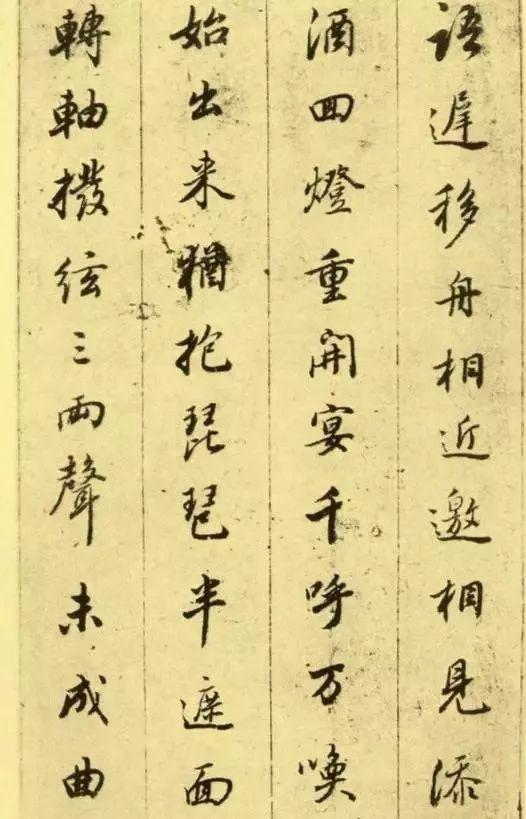 語遲移舟相近邀相見添
酒回燈重開宴千呼万喚
始出来猶抱琵琶半遮面
轉軸撥絃三兩聲未成曲